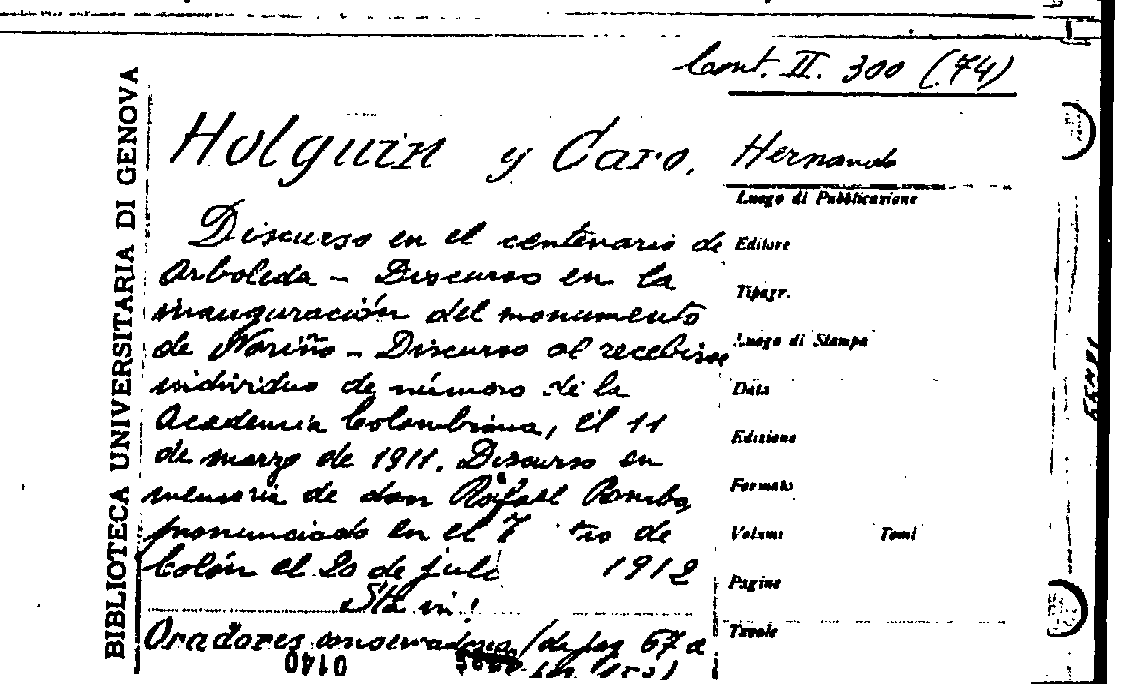 Cont. II. 300 (74)
BIBLIOTECA UNIVERSITARIA DI GENOVA
Holguin y Caro, Hernando
Discurso en el centenario de
Arboleda - Discurso en la
inauguración del monumento
de Nariño - Discurso al recebirse
individuo de número de la
Academia Colombiana, el 11
de marzo de 1911. Discurso en
memoria de don Rafael Pombo,
pronunciado en el T tro de
Colón el 20 de juli 1912
Sta in:
Oradores conservadores (de pag 67 a
0140
Luogo di Pubblicazione
Editore
Tipogr.
Luogo di Stampa
Data
Edizione
Formato
Volumi Tomi
Pagine
Tavole